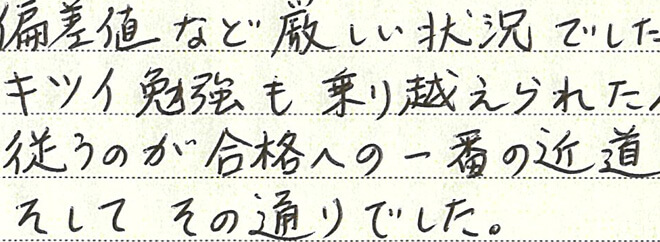 偏差値など厳しい状況でした
キツイ勉強も乗り越えられた
従うのが合格への一番の近道
そして その通りでした。